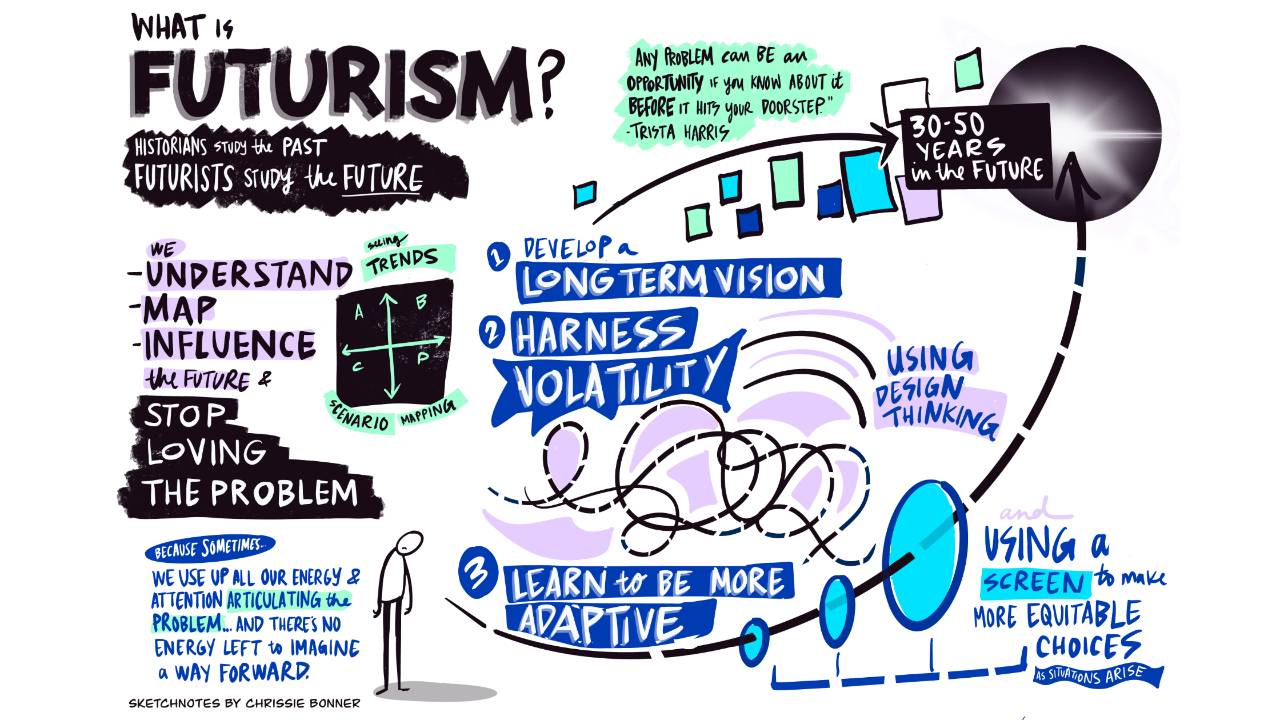 WHAT is
FUTURISM?
HISTORIANS STUDY the PAST
FUTURISTS STUDY the FUTURE
"ANY PROBLEM can BE an
OPPORTUNITY IF you KNOW ABOUT it
BEFORE IT HITS YOUR DOORSTEP."
-TRISTA HARRIS
30-50
YEARS
in the FUTURE
WE
-UNDERSTAND
-MAP
-INFLUENCE
the FUTURE &
STOP
LOVING
THE PROBLEM
seeing
TRENDS
A B
C P
SCENARIO MAPPING
BECAUSE SOMETIMES...
WE USE UP ALL OUR ENERGY &
ATTENTION ARTICULATING the
PROBLEM... AND THERE'S NO
ENERGY LEFT to IMAGINE
a WAY FORWARD.
SKETCHNOTES BY CHRISSIE BONNER
1 DEVELOP a
LONG TERM VISION
2 HARNESS
VOLATILITY
USING
DESIGN
THINKING
3 LEARN to BE MORE
ADAPTIVE
and
USING a
SCREEN to make
MORE EQUITABLE
CHOICES
AS SITUATIONS ARISE